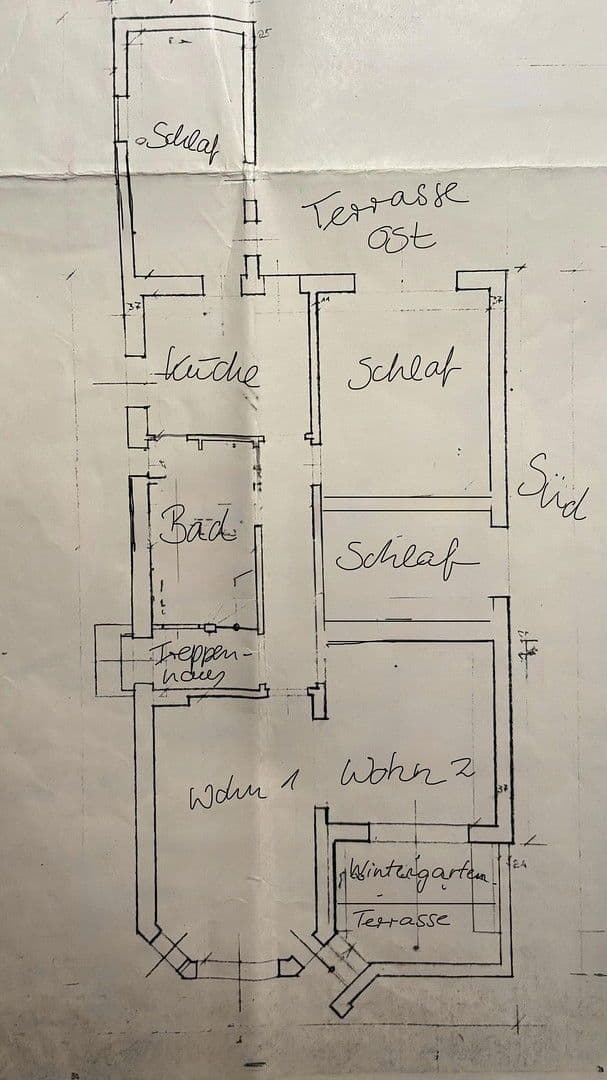 25
Schlaf
Terrasse
Ost
37
11
37
Küche
Schlaf
Süd
Bad
Schlaf
Treppen-
haus
Wohn 1
Wohn 2
37
Wintergarten
24
Terrasse